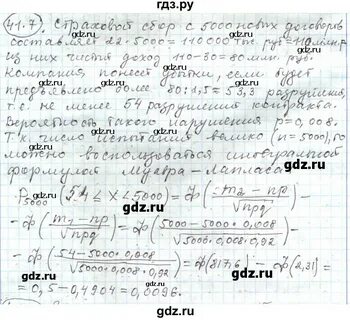 гдз.ру
41.7. Страховой сбор с 5000 новых договоров
составляет 22·5000=110000 тыс. руб=110 млн. р.
из них чистый доход 110-30=80 млн. руб.
Компания понесет убытки, если будет
предъявлено более 80:1,5=53,3 разрушений,
т.е. не менее 54 разрушения контракта.
Вероятность такого нарушения p=0,008.
Т.к. число испытания велико (n=5000), то
можно воспользоваться интегральной
формулой Муавра-Лапласа.
P5000 (54 ≤ X ≤ 5000) = Ф((m2-np)/√npq) -
-Ф((m1-np)/√npq) = Ф((5000-5000·0,008)/√5000·0,008·0,92) -
-Ф((54-5000·0,008)/√5000·0,008·0,92) = Ф(817,6) - Ф(2,31) =
= 0,5-0,4904=0,0096.
gdz.ru
gdz.ru
gdz.ru
gdz.ru
gdz.ru
gdz.ru
gdz.ru
gdz.ru
gdz.ru
gdz.ru